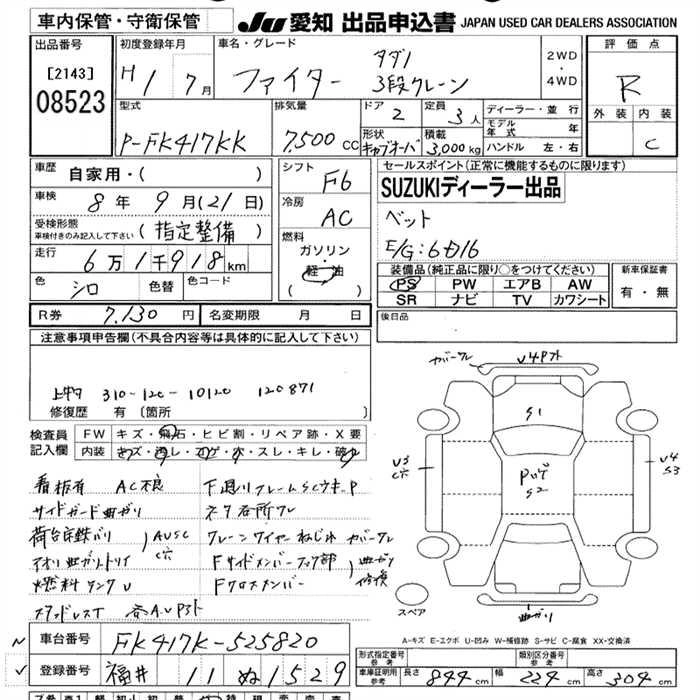 車内保管・守衛保管
JU 愛知 出品申込書 JAPAN USED CAR DEALERS ASSOCIATION
出品番号
[2143]
08523
初度登録年月
H 1 7月
車名・グレード
ファイター
タダノ
3段クレーン
2WD
・
4WD
評価点
R
外装 内装
C
型式
P-FK417KK
排気量
7,500 CC
ドア
2
定員
3人
形状
キャブオーバ
積載
3,000kg
ディーラー・並行
モデル年式 年
ハンドル 左・右
車歴
自家用・( )
車検
8年 9月(21日)
受検形態
車検付きのみ記入して下さい
(指定整備)
走行
6万1千918km
色
シロ
色替
色コード
シフト
F6
冷房
AC
燃料
ガソリン
・
軽油
( )
セールスポイント(正常に機能するものに限ります)
SUZUKIディーラー出品
ベット
E/G:6D16
装備品(純正品に限り○をつけてください)
PS PW エアB AW
SR ナビ TV カワシート
新車保証書
有・無
後日品
R券 7,130円 名変期限 月 日
注意事項申告欄(不具合内容等は具体的に記入して下さい)
上物 310-120-10120 120871
修復歴 有 〔箇所
検査員
記入欄
FW キズ・飛石・ヒビ割・リペア跡・X要
内装 キズ・汚レ・コゲ・穴・スレ・キレ・破レ
看板有 AC不良 下廻りフレームSCウキP
サイドガード曲ガリ
荷台床鉄バリ AUSC穴
アオリ曲ガリ
燃料タンクU
クレーンワイヤーねじれ
Fサイドメンバーフック部 曲ガリ修換
Fクロスメンバー
V4Pアト
S1
V3
穴
V4
S3
S2
曲がり
スペア
A-キズ E-エクボ U-凹み W-補修跡 S-サビ C-腐食 XX-交換済
車台番号 FK417K-525820
登録番号 福井 11 ぬ 1529
形式指定番号
参考
類別区分番号
参考
車庫証明用
参考
長さ 844cm 幅 224cm 高さ 304cm